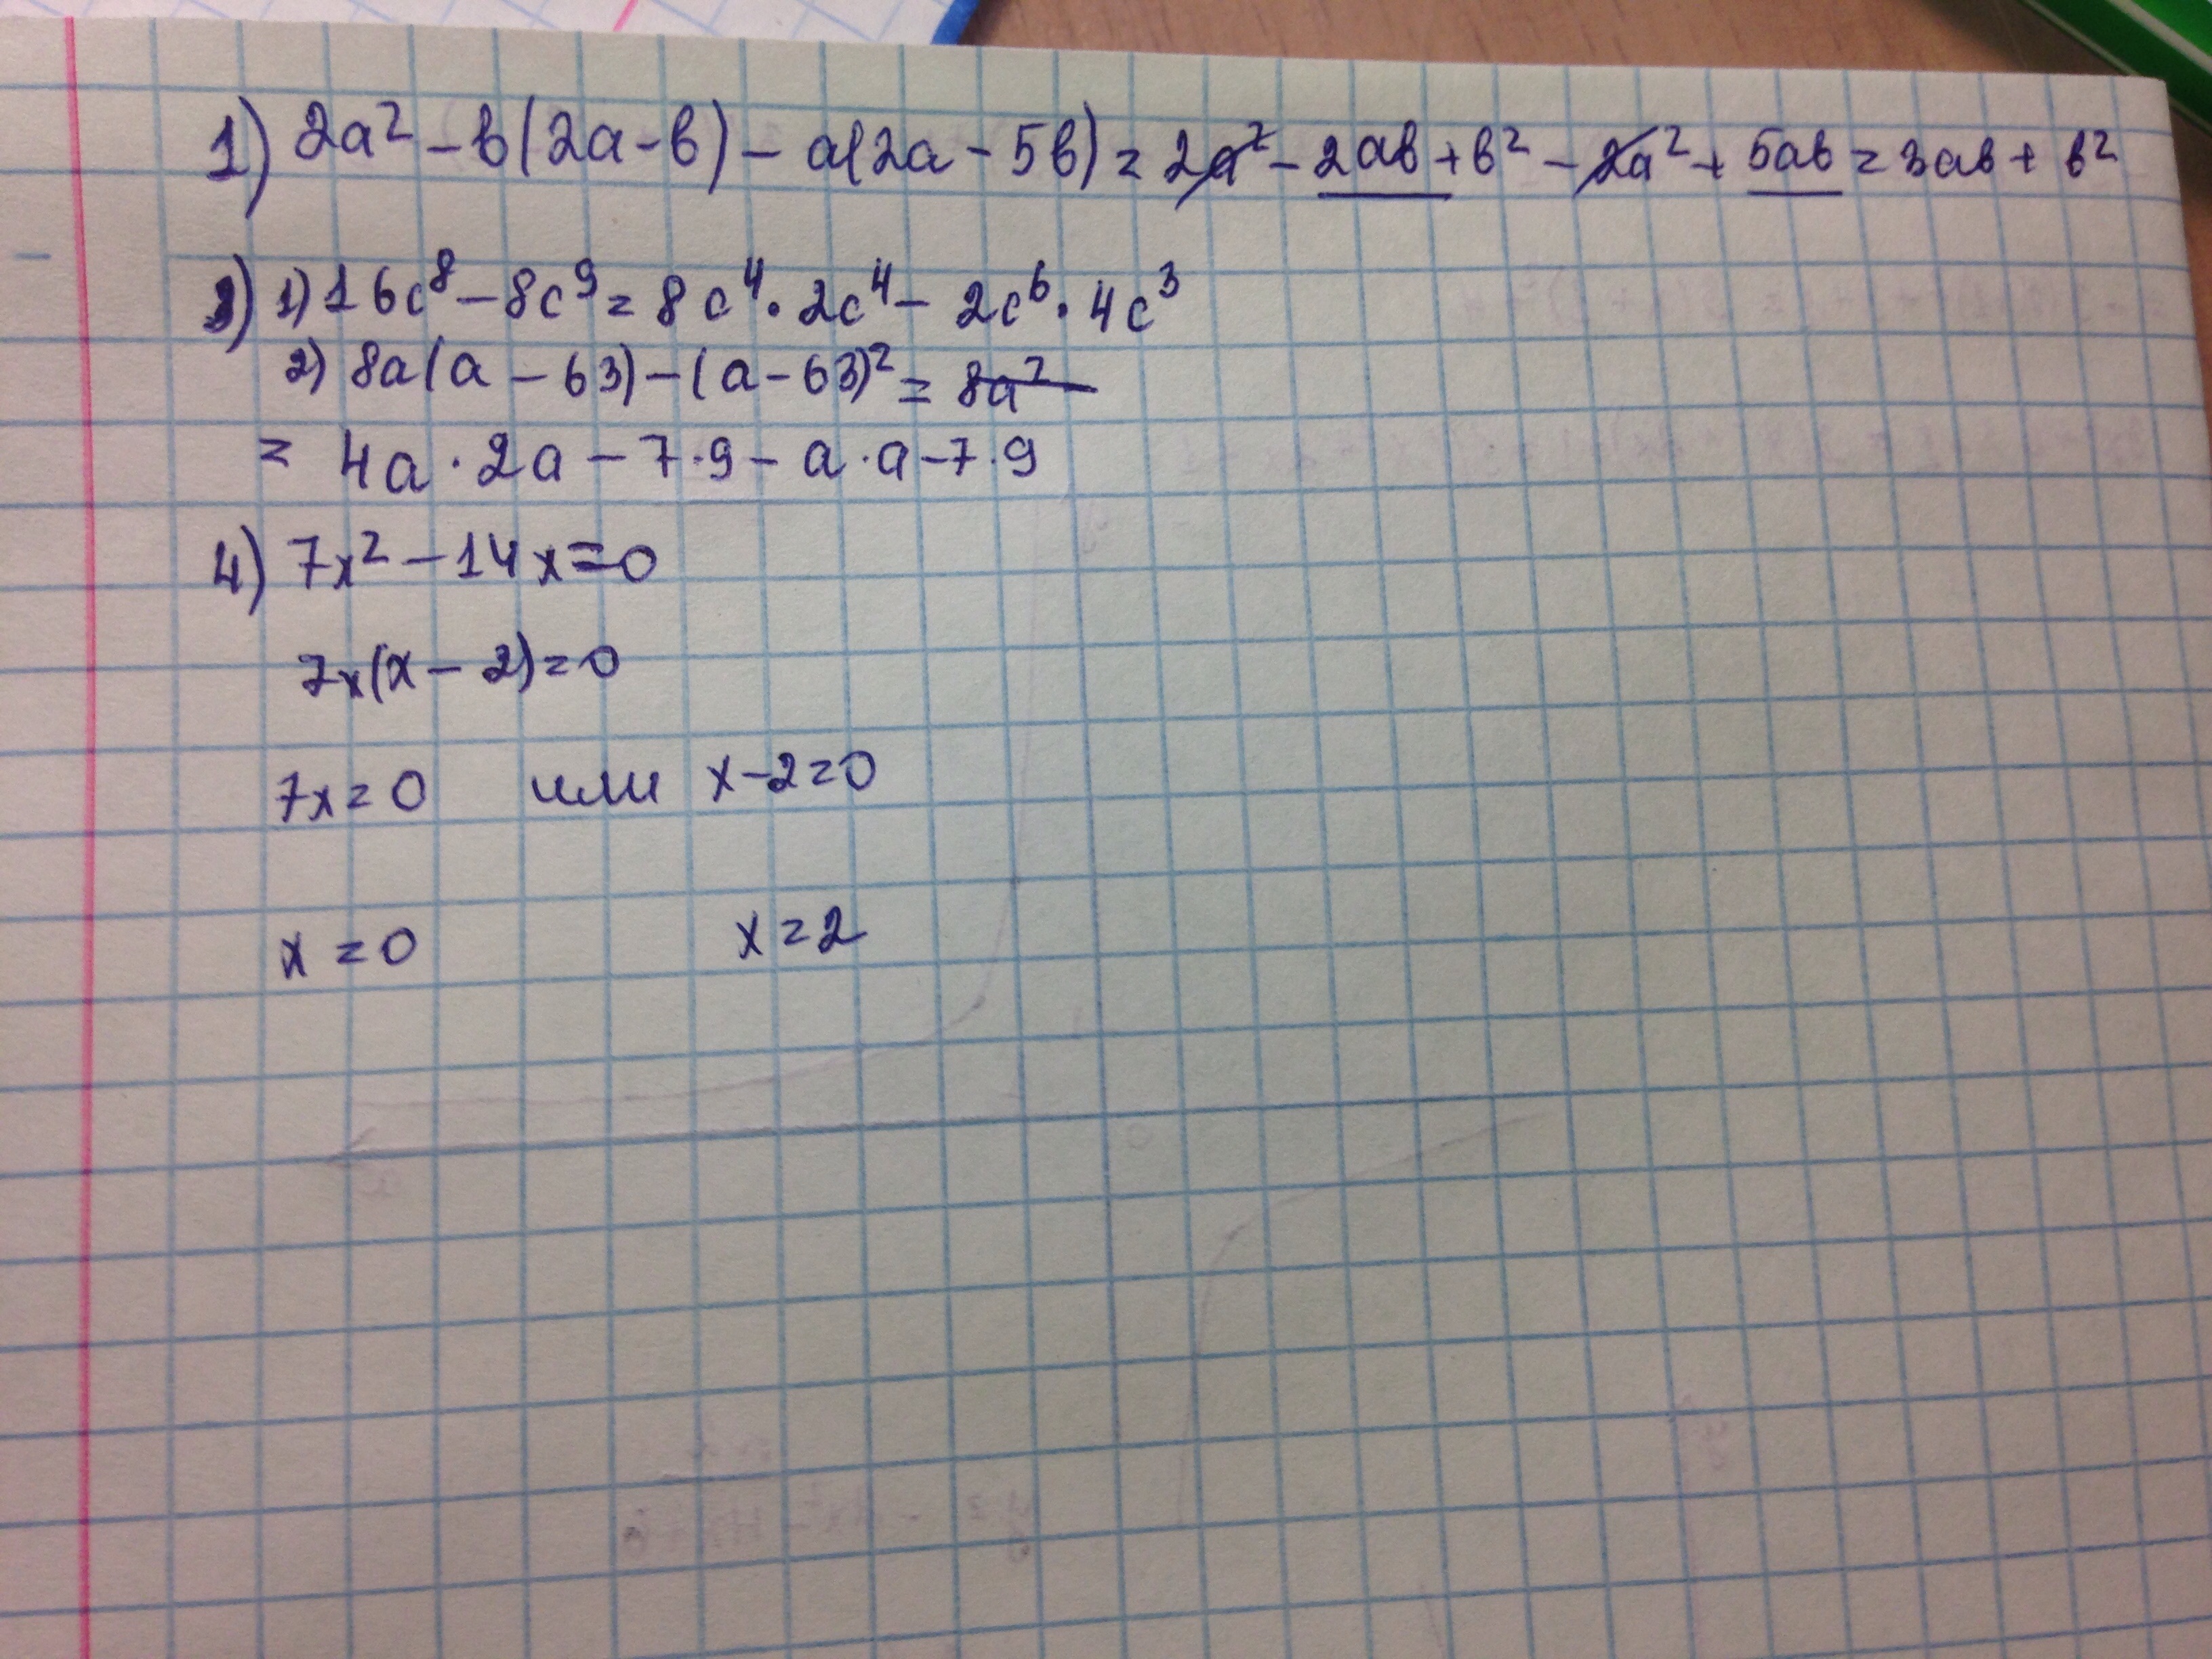 1) 2a² - в(2a - в) - a(2a - 5в) = 2a² - 2aв + в² - 2a² + 5aв = 3aв + в²
3) 1) 16c⁸ - 8c⁹ = 8c⁴ · 2c⁴ - 2c⁶ · 4c³
2) 8a(a - 63) - (a - 63)² = 8a²
= 4a · 2a - 7 · 9 - a · a - 7 · 9
4) 7x² - 14x = 0
7x(x - 2) = 0
7x = 0 или x - 2 = 0
x = 0 x = 2